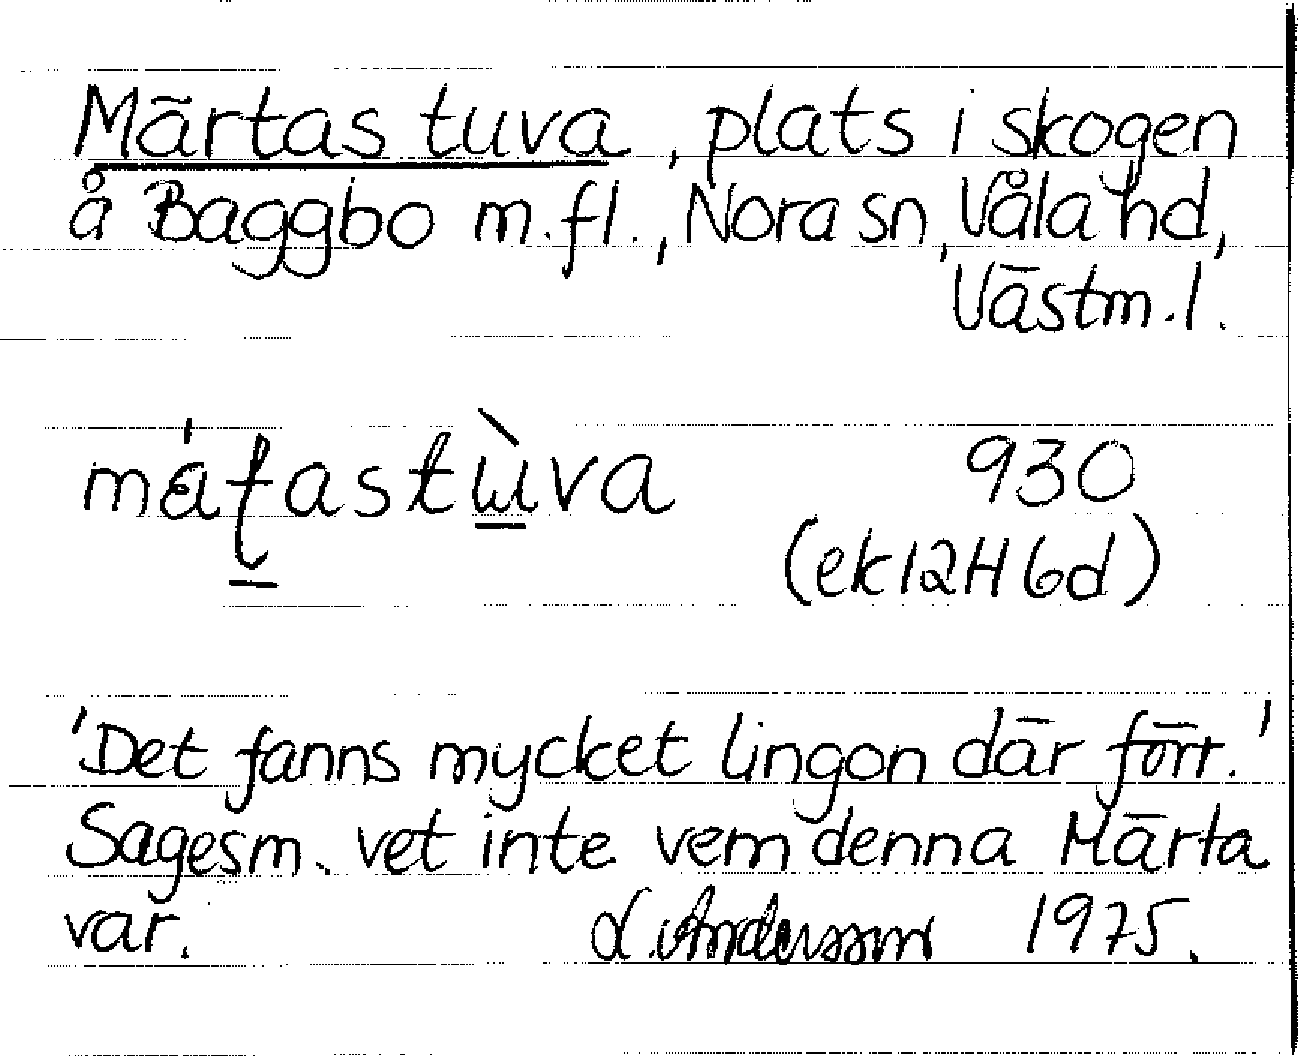 Märtas tuva, plats i skogen
å Baggbo m.fl., Nora sn, Våla hd,
Västm.l.
930
(ek 12H 6d)
'Det fanns mycket lingon där förr.'
Sagesm. vet inte vem denna Märta
var. L. Andersson 1975.